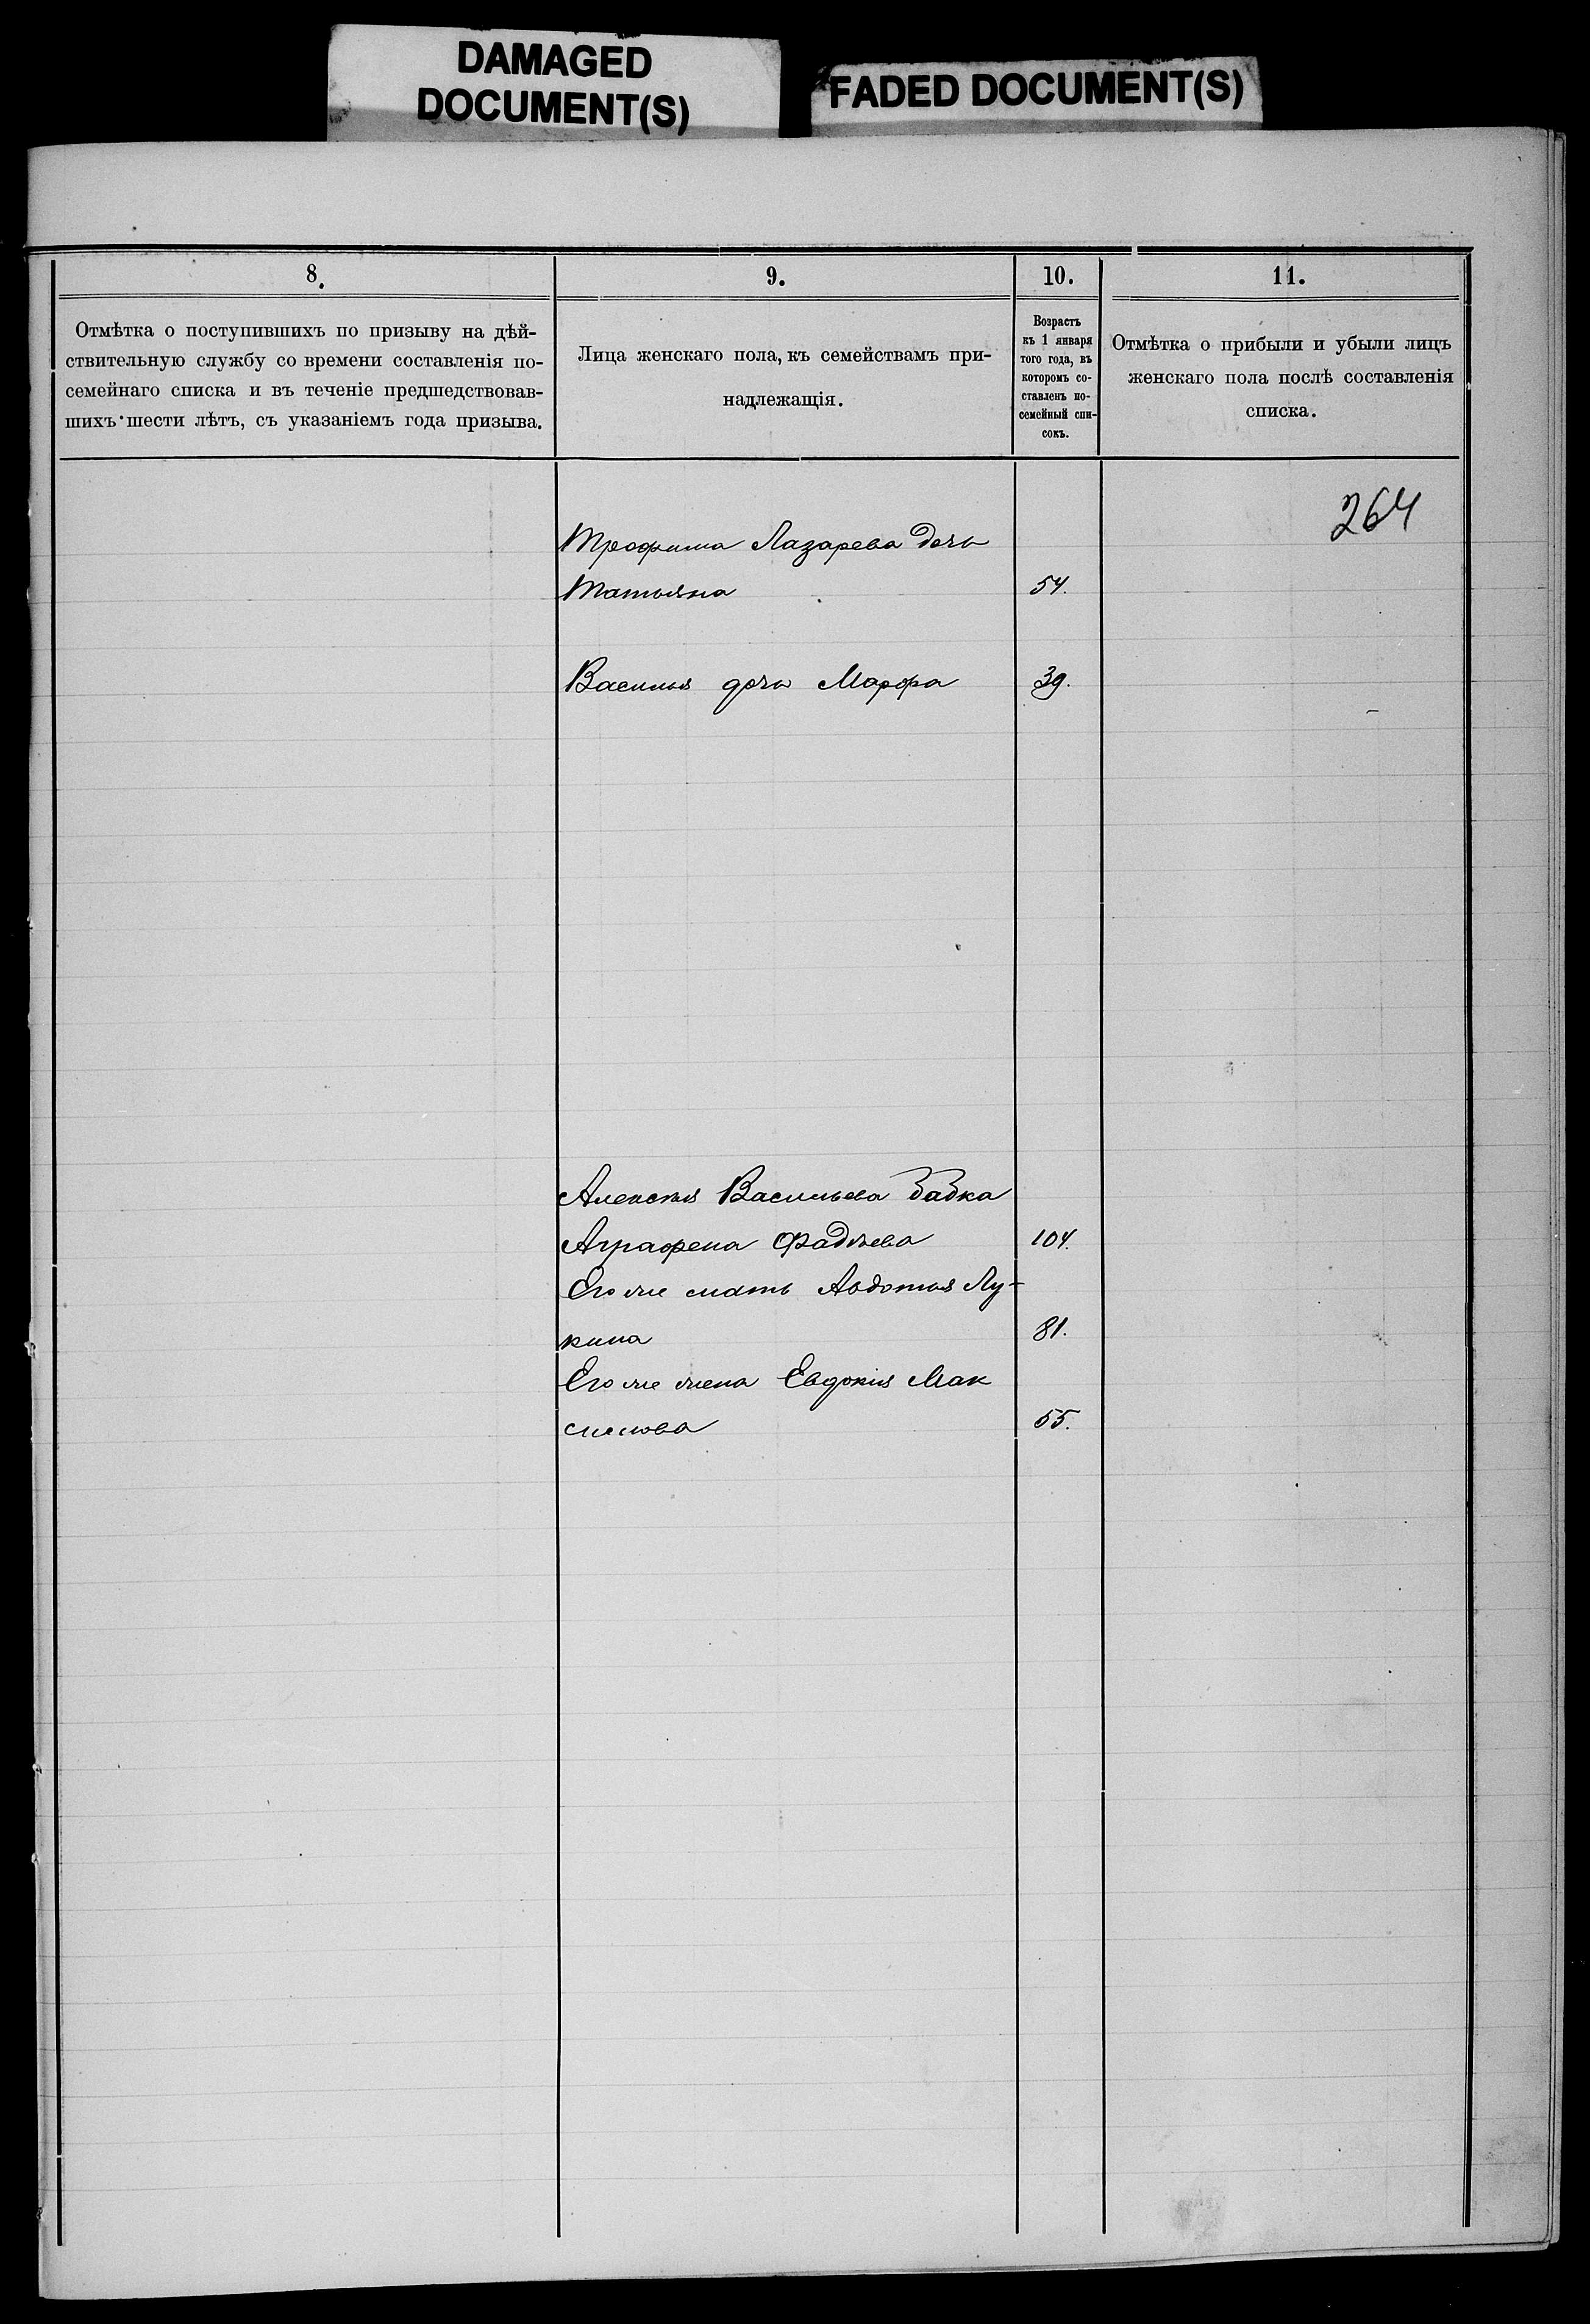 DAMAGED
DOCUMENT(S)
FADED DOCUMENT(S)
8.
9.
10.
11.
Отмѣтка о поступившихъ по призыву на дѣй-
ствительную службу со времени составленія по-
семейнаго списка и въ теченіе предшедствовав-
шихъ шести лѣтъ, съ указаніемъ года призыва.
Лица женскаго пола, къ семействамъ при-
надлежащія.
Возрастъ
къ 1 января
того года, въ
которомъ со-
ставленъ по-
семейный спи-
сокъ.
Отмѣтка о прибыли и убыли лицъ
женскаго пола послѣ составленія
списка.
264
Трофима Лазарева дочь
Татьяна 54.
Василья дочь Марфа 39.
Алексѣя Васильева бабка
Аграфена Фадѣева 104.
Его же мать Авдотья Лу-
кина 81.
Его же жена Евдокія Мак
симова 55.